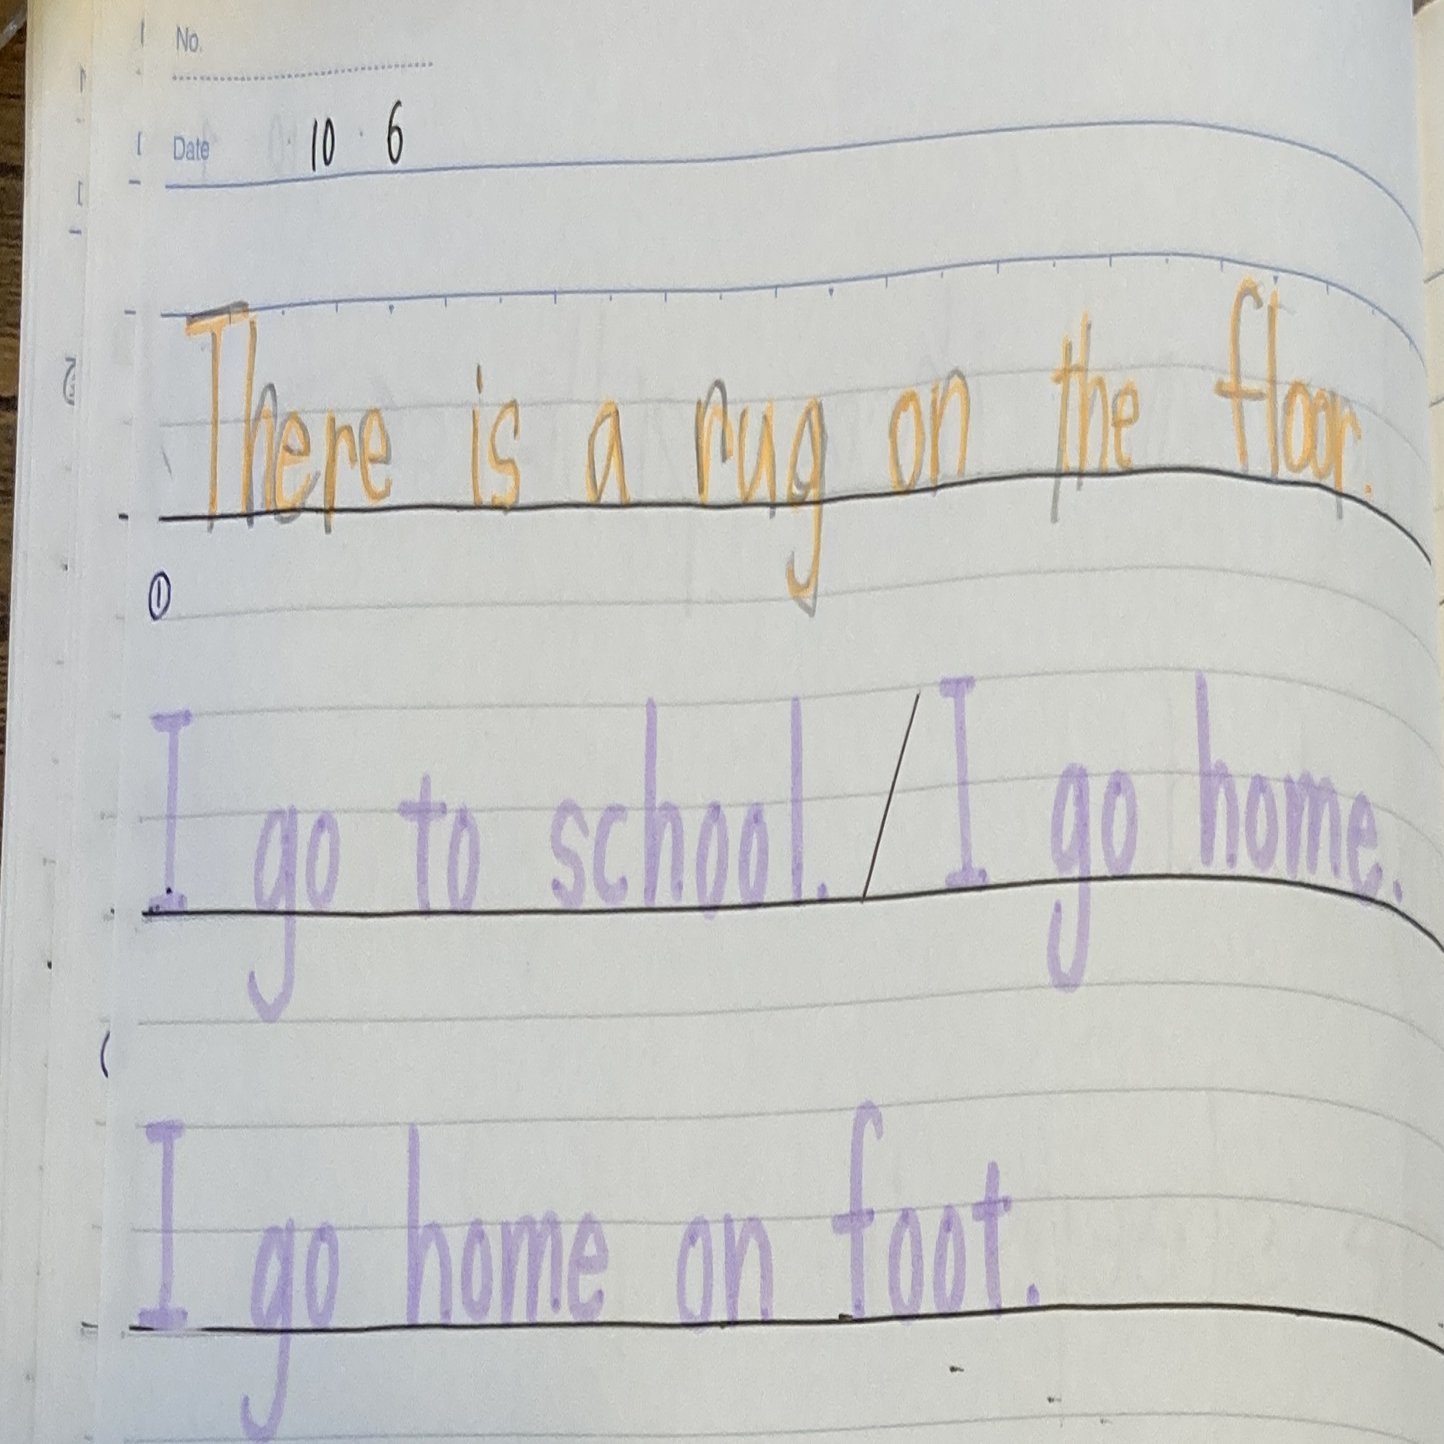 No.
Date 10・6
There is a rug on the floor.
①
I go to school. / I go home.
I go home on foot.